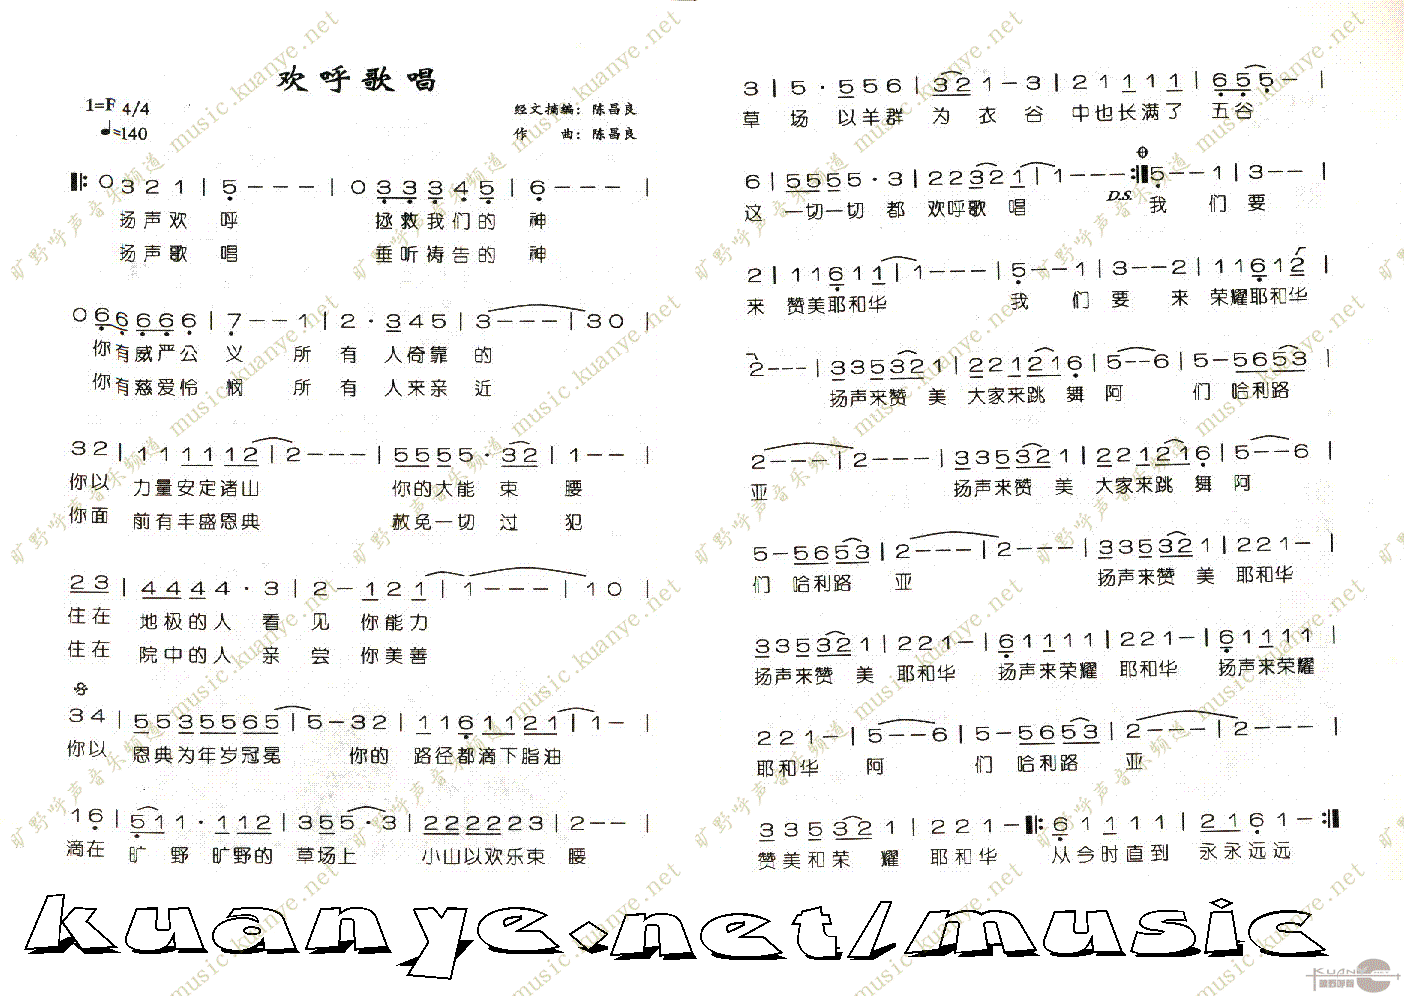 欢呼歌唱
1=F 4/4
♩=140
经文摘编：陈昌良
作 曲：陈昌良
0 3 2 1 | 5 - - - | 0 3 3 3 4 5 | 6 - - - |
扬声欢 呼 拯救我们的 神
扬声歌 唱 垂听祷告的 神
0 6 6 6 6 6 | 7 - - 1 | 2 · 3 4 5 | 3 - - - | 3 0
你有威严公 义 所 有 人倚靠 的
你有慈爱怜 悯 所 有 人来亲 近
3 2 | 1 1 1 1 1 2 | 2 - - - | 5 5 5 5 · 3 2 | 1 - - |
你以 力量安定诸山 你的大能 束 腰
你面 前有丰盛恩典 赦免一切 过 犯
2 3 | 4 4 4 4 · 3 | 2 - 1 2 1 | 1 - - - | 1 0 |
住在 地极的人 看 见 你能力
住在 院中的人 亲 尝 你美善
3 4 | 5 5 3 5 5 6 5 | 5 - 3 2 | 1 1 6 1 1 2 1 | 1 - |
你以 恩典为年岁冠冕 你的 路径都滴下脂油
1 6 | 5 1 1 · 1 1 2 | 3 5 5 · 3 | 2 2 2 2 2 2 3 | 2 - - |
滴在 旷 野 旷野的 草场上 小山以欢乐束 腰
3 | 5 · 5 5 6 | 3 2 1 - 3 | 2 1 1 1 1 | 6 5 5 - |
草 场 以羊群 为 衣 谷 中也长满了 五谷
6 | 5 5 5 5 · 3 | 2 2 3 2 1 | 1 - - - :| 5 - - 1 | 3 - - |
D.S.
这 一切一切 都 欢呼歌 唱 我 们 要
2 | 1 1 6 1 1 | 1 - - - | 5 - - 1 | 3 - - 2 | 1 1 6 1 2 |
来 赞美耶和华 我 们 要 来 荣耀耶和华
2 - - - | 3 3 5 3 2 1 | 2 2 1 2 1 6 | 5 - - 6 | 5 - 5 6 5 3 |
扬声来赞 美 大家来跳 舞 阿 们 哈利路
2 - - - | 2 - - - | 3 3 5 3 2 1 | 2 2 1 2 1 6 | 5 - - 6
亚 扬声来赞 美 大家来跳 舞 阿
5 - 5 6 5 3 | 2 - - - | 2 - - - | 3 3 5 3 2 1 | 2 2 1 - |
们 哈利路 亚 扬声来赞 美 耶和华
3 3 5 3 2 1 | 2 2 1 - | 6 1 1 1 1 | 2 2 1 - | 6 1 1 1 1 |
扬声来赞 美 耶和华 扬声来荣耀 耶和华 扬声来荣耀
2 2 1 - | 5 - - 6 | 5 - 5 6 5 3 | 2 - - - | 2 - - - |
耶和华 阿 们 哈利路 亚
3 3 5 3 2 1 | 2 2 1 - |: 6 1 1 1 1 | 2 1 6 1 - :|
赞美和荣 耀 耶和华 从今时直到 永永远远
kuanye.net/music
旷野呼声音乐频道 music.kuanye.net